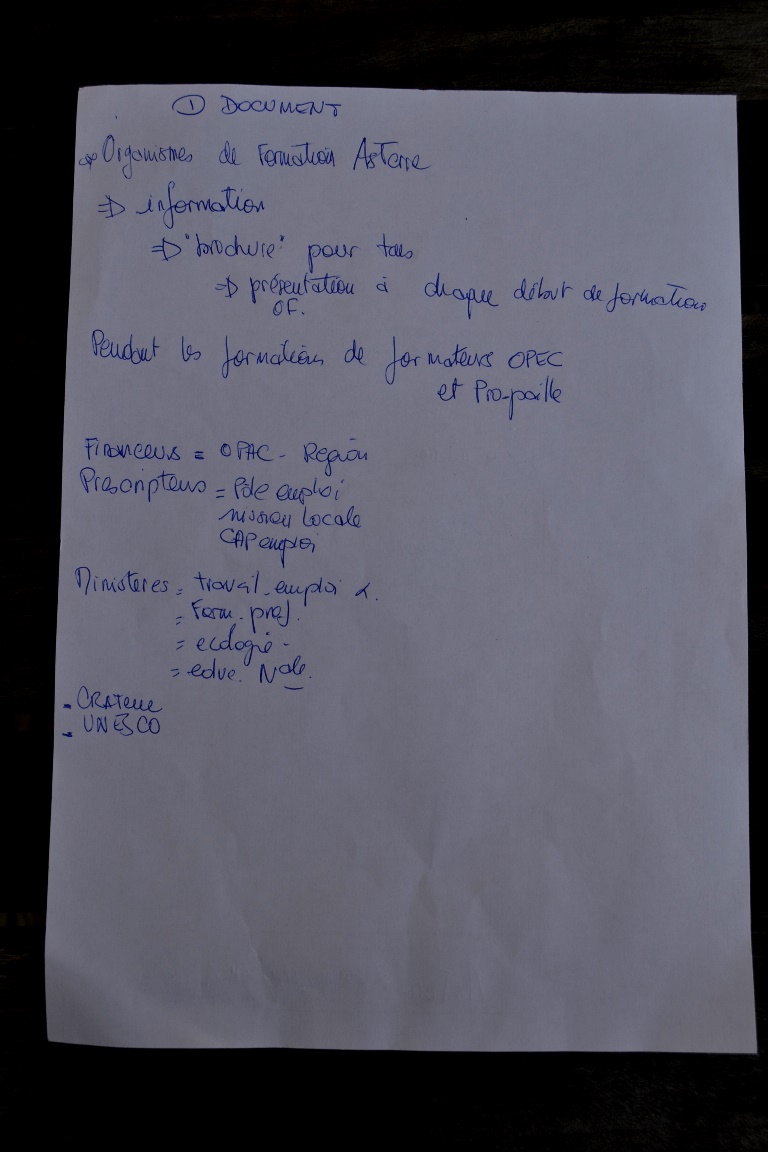 ① DOCUMENT
* Organismes de Formation AsTerre
⇒ information
⇒ "brochure" pour tous
⇒ présentation à chaque début de formation
OF.
Pendant les formations de formateurs OPEC
et Pro-paille
Financeurs = OPAC - Région
Prescripteurs = Pôle emploi
mission Locale
CAP emploi
Ministères = travail. emploi &.
= Form. prof.
= ecologie -
= educ. Nale.
- CRATerre
- UNESCO